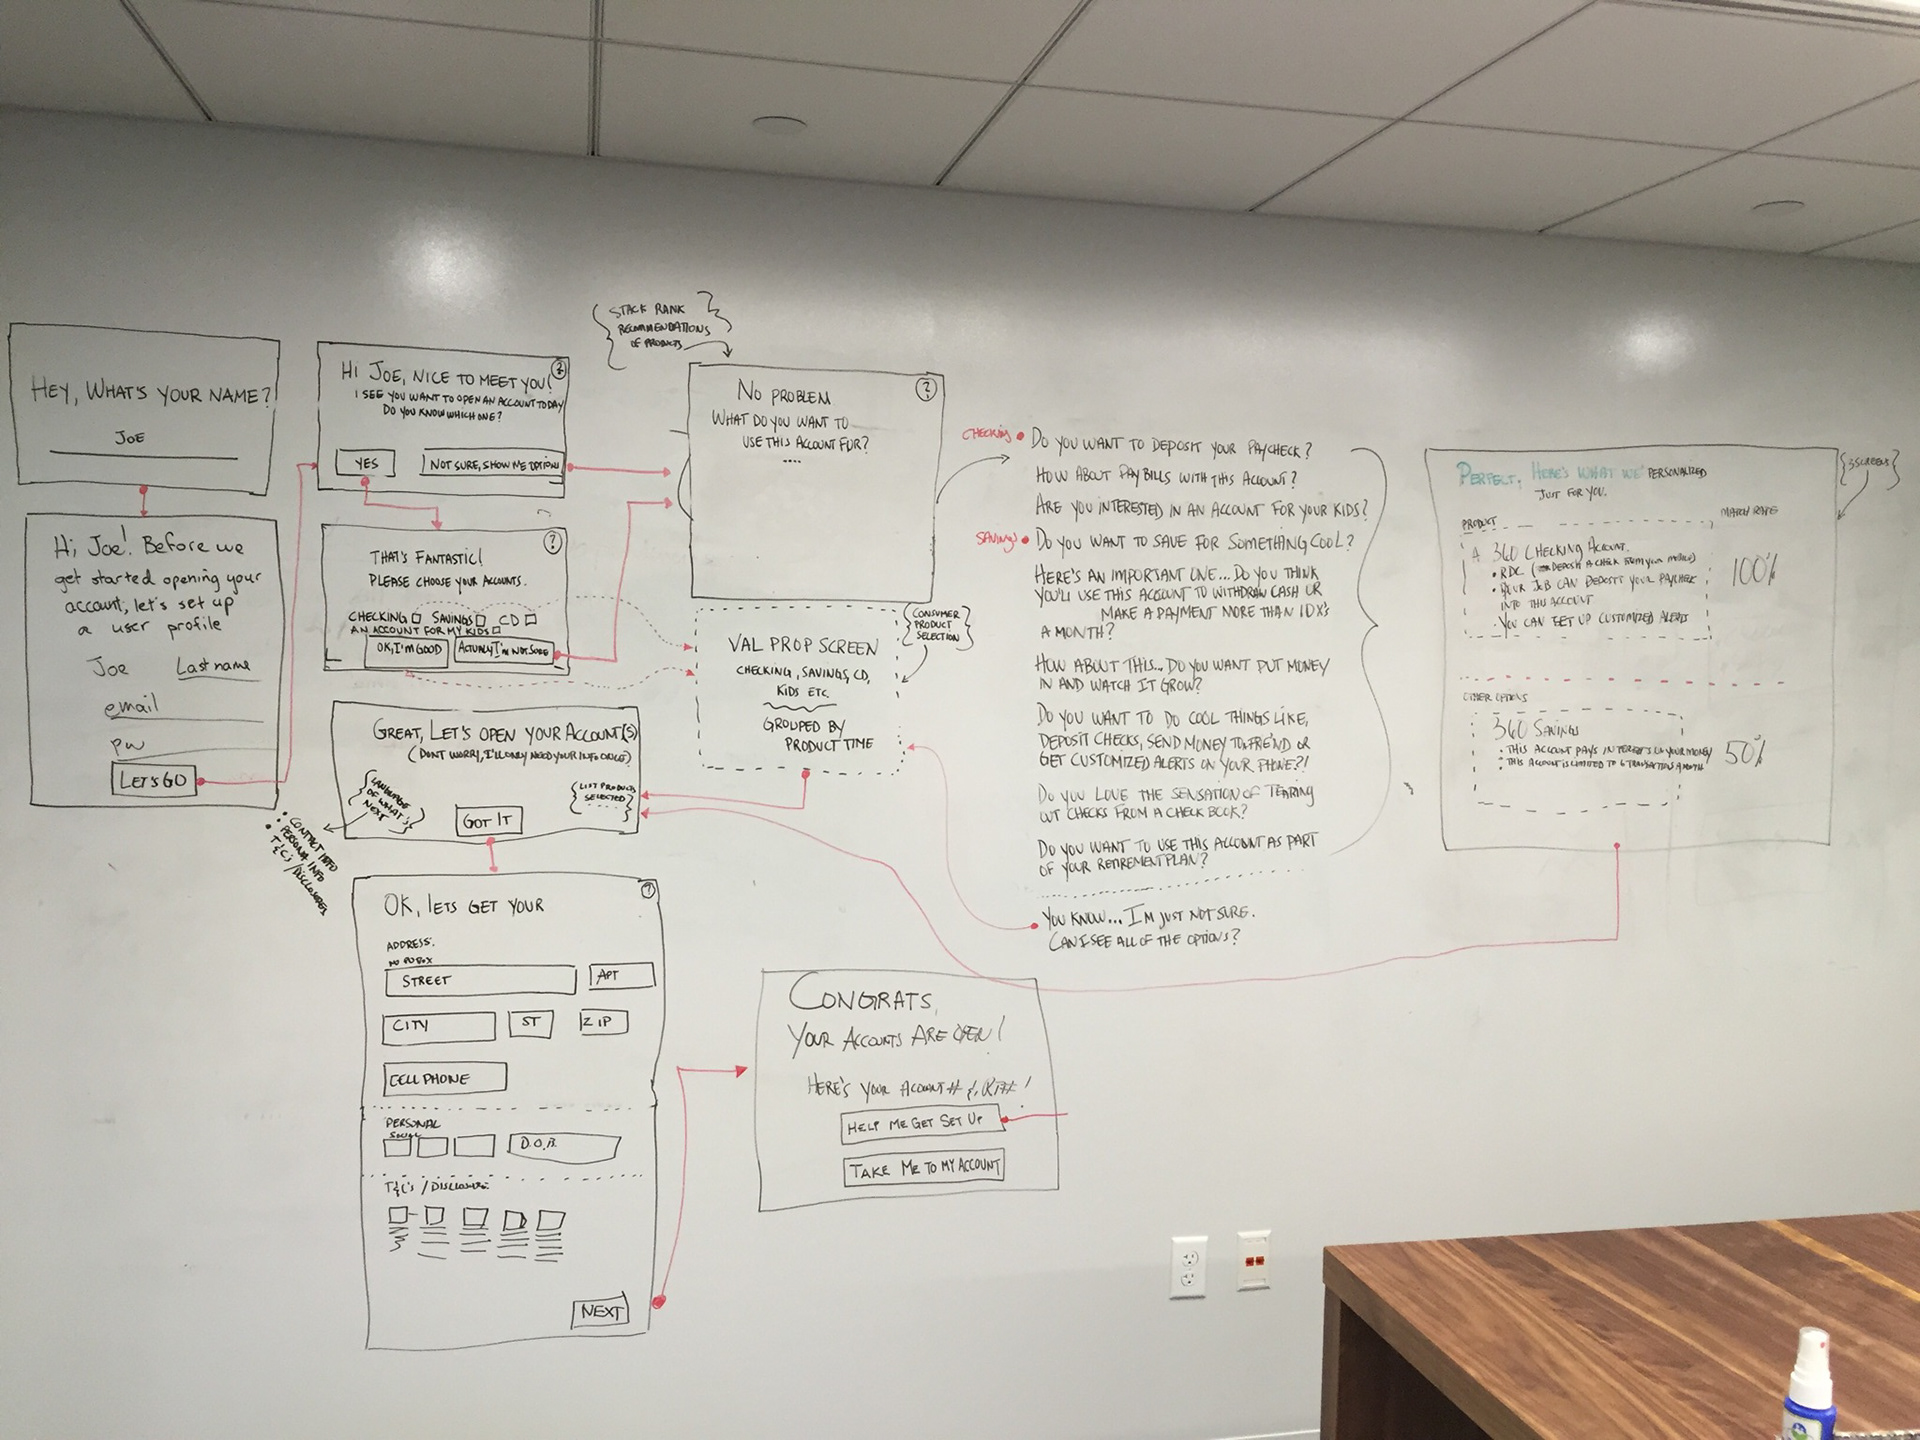 HEY, WHAT'S YOUR NAME?
JOE
Hi, Joe! Before we
get started opening your
account, let's set up
a user profile
Joe Last name
email
pw
LET'S GO
HI JOE, NICE TO MEET YOU!
?
I SEE YOU WANT TO OPEN AN ACCOUNT TODAY
DO YOU KNOW WHICH ONE?
YES
NOT SURE, SHOW ME OPTIONS
THAT'S FANTASTIC!
?
PLEASE CHOOSE YOUR ACCOUNTS.
CHECKING SAVINGS CD
AN ACCOUNT FOR MY KIDS
OK, I'M GOOD
ACTUALLY I'M NOT SURE
GREAT, LET'S OPEN YOUR ACCOUNT(S)
(DON'T WORRY, I'LL ONLY NEED YOUR INFO ONCE)
LANGUAGE
OF WHAT'S
NEXT
GOT IT
LIST PRODUCTS
SELECTED
• CONTACT INFO
• PERSONAL INFO
• T&C'S/DISCLOSURES
OK, LETS GET YOUR
?
ADDRESS.
NO PO BOX
STREET
APT
CITY
ST
ZIP
CELL PHONE
PERSONAL
SOCIAL
D.O.B.
T&C'S / DISCLOSURE
NEXT
STACK RANK
RECOMMENDATIONS
OF PRODUCTS
NO PROBLEM
?
WHAT DO YOU WANT TO
USE THIS ACCOUNT FOR?
....
CONSUMER
PRODUCT
SELECTION
VAL PROP SCREEN
CHECKING, SAVINGS, CD,
KIDS ETC.
GROUPED BY
PRODUCT TIME
CONGRATS,
YOUR ACCOUNTS ARE OPEN!
HERE'S YOUR ACCOUNT #
HELP ME GET SET UP
TAKE ME TO MY ACCOUNT
CHECKING • DO YOU WANT TO DEPOSIT YOUR PAYCHECK?
HOW ABOUT PAY BILLS WITH THIS ACCOUNT?
ARE YOU INTERESTED IN AN ACCOUNT FOR YOUR KIDS?
SAVINGS • DO YOU WANT TO SAVE FOR SOMETHING COOL?
HERE'S AN IMPORTANT ONE... DO YOU THINK
YOU'LL USE THIS ACCOUNT TO WITHDRAW CASH OR
MAKE A PAYMENT MORE THAN 10X'S
A MONTH?
HOW ABOUT THIS... DO YOU WANT PUT MONEY
IN AND WATCH IT GROW?
DO YOU WANT TO DO COOL THINGS LIKE,
DEPOSIT CHECKS, SEND MONEY TO FRIEND OR
GET CUSTOMIZED ALERTS ON YOUR PHONE?!
DO YOU LOVE THE SENSATION OF TEARING
OUT CHECKS FROM A CHECK BOOK?
DO YOU WANT TO USE THIS ACCOUNT AS PART
OF YOUR RETIREMENT PLAN?
YOU KNOW... I'M JUST NOT SURE.
CAN I SEE ALL OF THE OPTIONS?
PERFECT, HERE'S WHAT WE PERSONALIZED
JUST FOR YOU.
3 SCREENS
PRODUCT
MATCH RATE
A 360 CHECKING ACCOUNT.
100%
• RDC (DEPOSIT A CHECK FROM YOUR MOBILE)
• YOUR JOB CAN DEPOSIT YOUR PAYCHECK
INTO THIS ACCOUNT
• YOU CAN SET UP CUSTOMIZED ALERTS
OTHER OPTIONS
360 SAVINGS
50%
• THIS ACCOUNT PAYS INTEREST ON YOUR MONEY
• THIS ACCOUNT IS LIMITED TO 6 TRANSACTIONS A MONTH